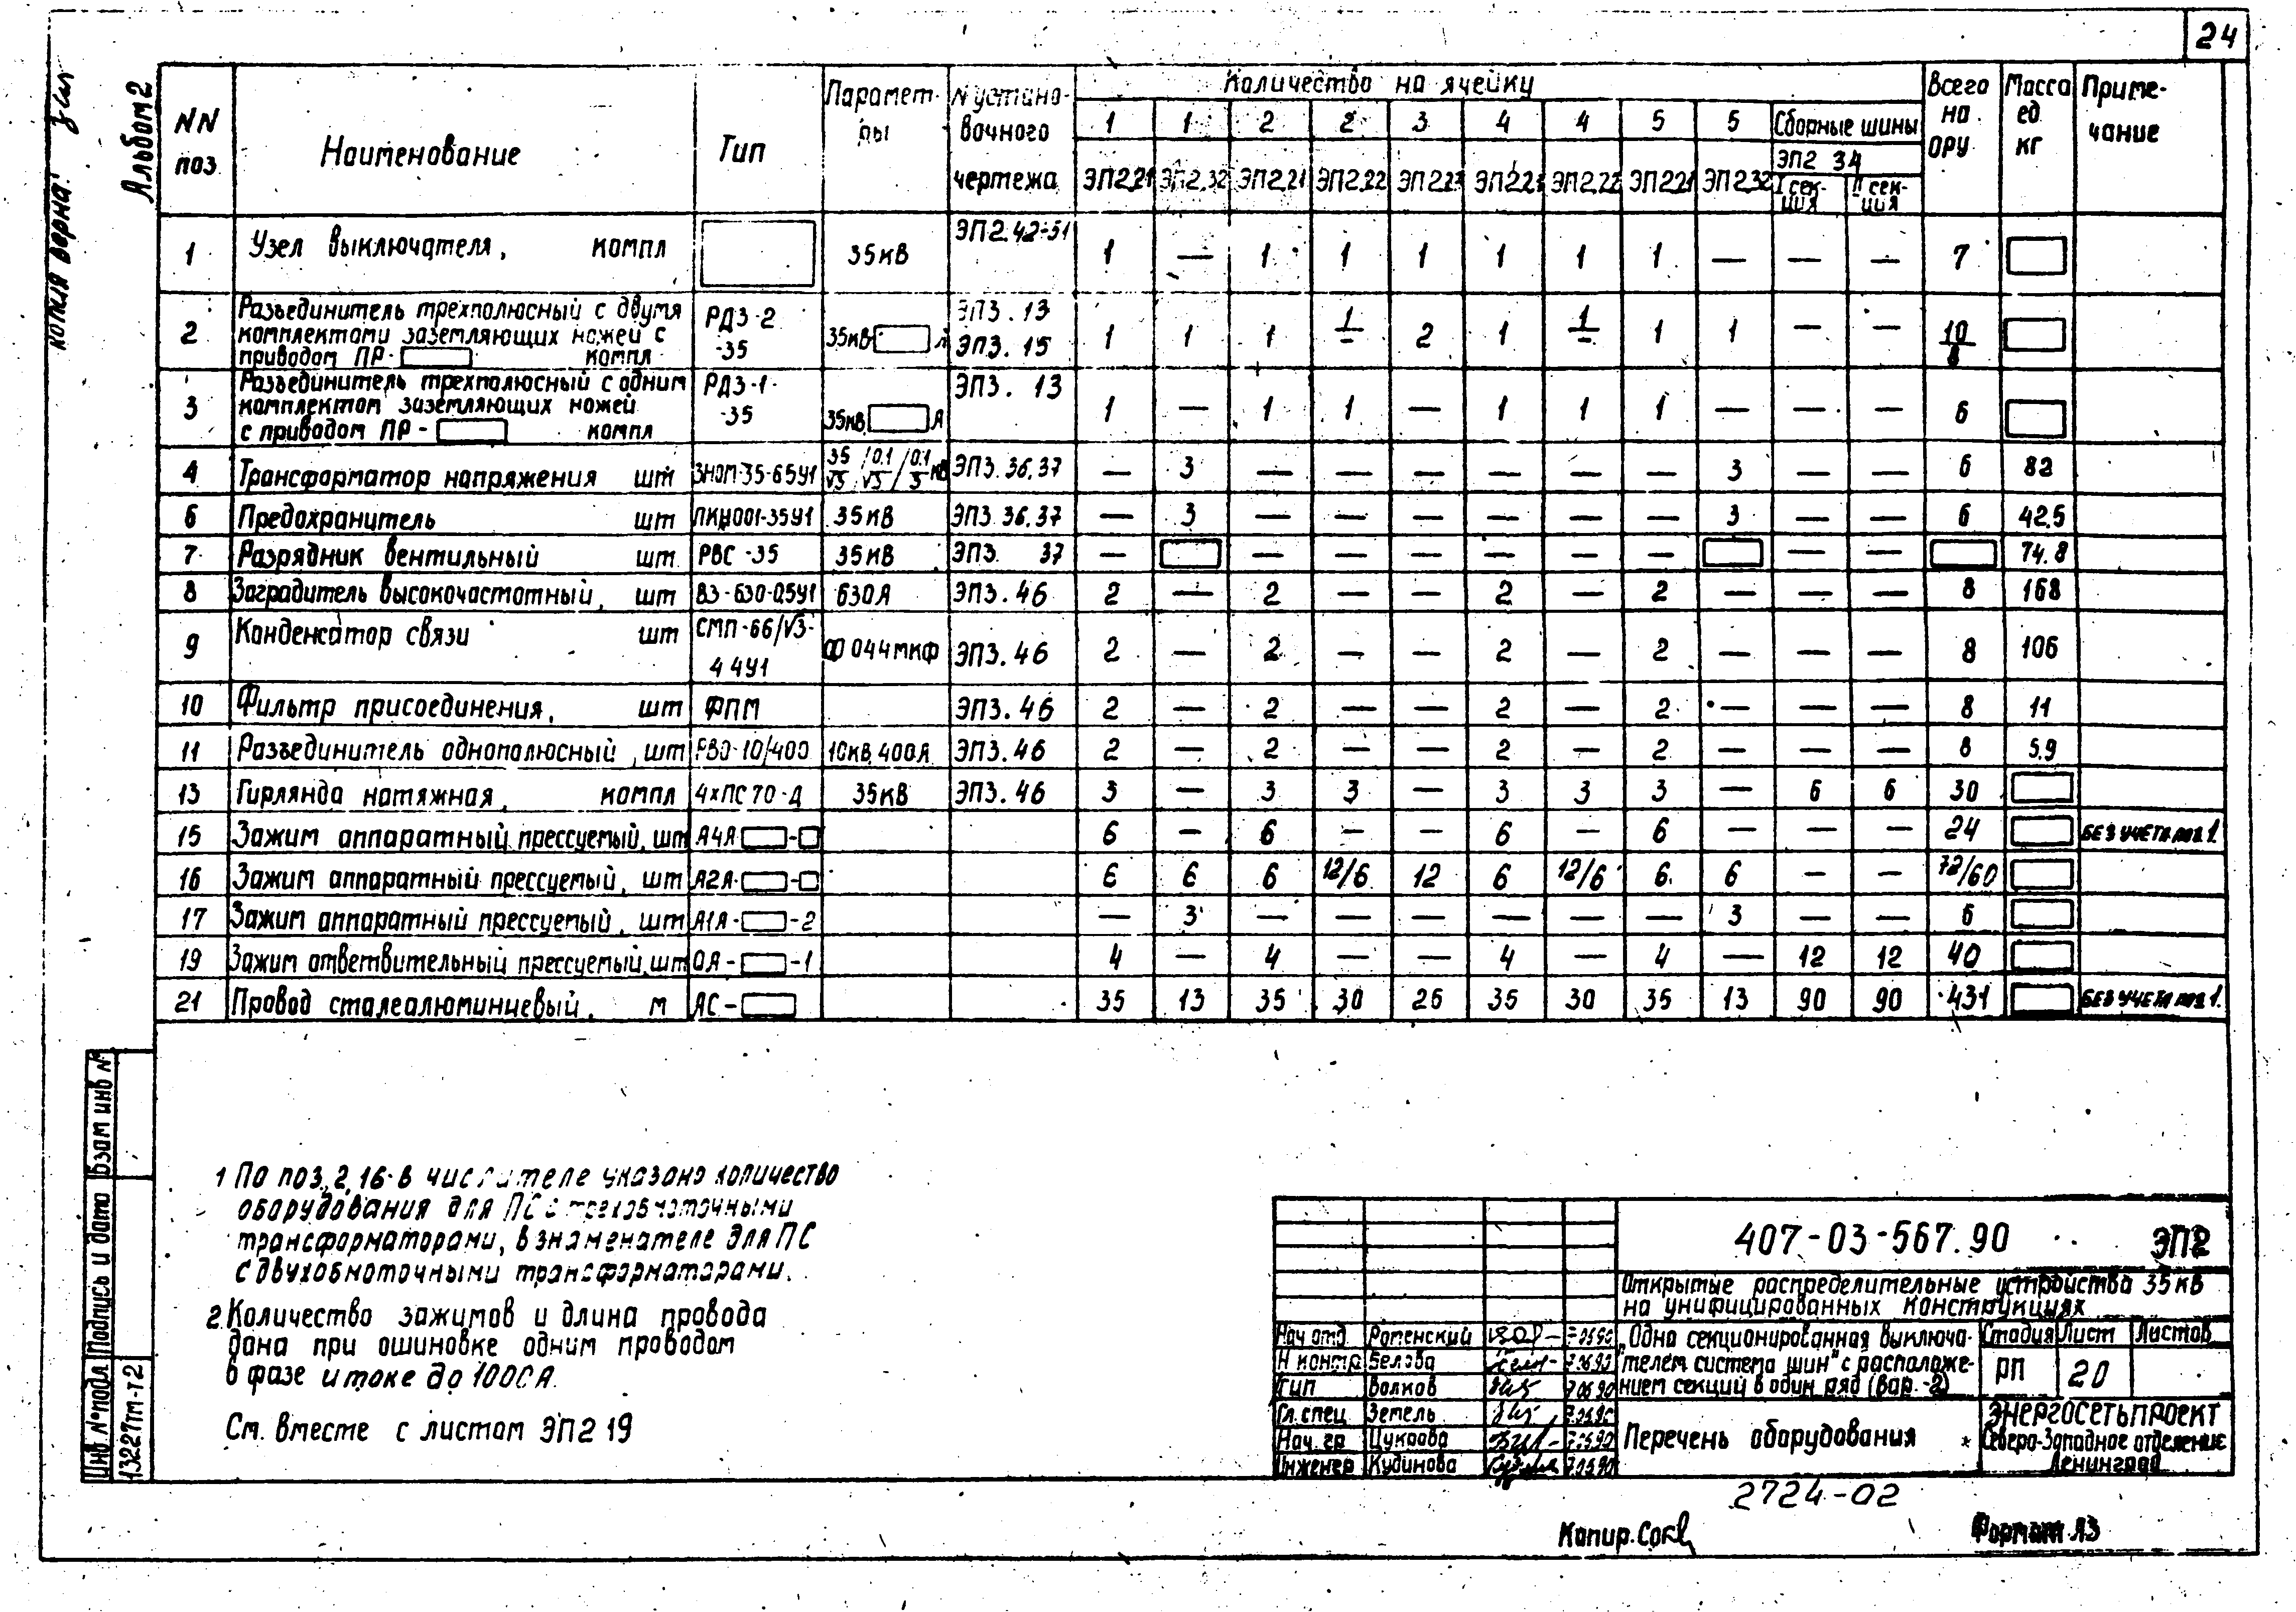 24
копия верна:
Альбом 2
NN поз | Наименование | Тип | Параметры | N установочного чертежа | Количество на ячейку | Всего на ОРУ | Масса ед. кг | Примечание
1 | 1 | 2 | 2 | 3 | 4 | 4 | 5 | 5 | Сборные шины
ЭП2.21 | ЭП2.32 | ЭП2.21 | ЭП2.22 | ЭП2.23 | ЭП2.21 | ЭП2.22 | ЭП2.21 | ЭП2.32 | ЭП2 34
I секция | II секция
1 | Узел выключателя, компл | | 35кВ | ЭП2.42÷51 | 1 | — | 1 | 1 | 1 | 1 | 1 | 1 | — | — | — | 7
2 | Разъединитель трехполюсный с двумя комплектами заземляющих ножей с приводом ПР- компл | РДЗ-2 -35 | 35кВ А | ЭП3.13 ЭП3.15 | 1 | 1 | 1 | 1/— | 2 | 1 | 1/— | 1 | 1 | — | — | 10/8
3 | Разъединитель трехполюсный с одним комплектом заземляющих ножей с приводом ПР- компл | РДЗ-1- -35 | 35кВ, А | ЭП3. 13 | 1 | — | 1 | 1 | — | 1 | 1 | 1 | — | — | — | 6
4 | Трансформатор напряжения шт | ЗНОМ-35-65У1 | 35/√3 / 0.1/√3 / 0.1/3 кВ | ЭП3.36,37 | — | 3 | — | — | — | — | — | — | 3 | — | — | 6 | 82
6 | Предохранитель шт | ПКН001-35У1 | 35кВ | ЭП3.36,37 | — | 3 | — | — | — | — | — | — | 3 | — | — | 6 | 42.5
7 | Разрядник вентильный шт | РВС-35 | 35кВ | ЭП3. 37 | — | | — | — | — | — | — | — | | — | — | | 74.8
8 | Заградитель высокочастотный, шт | ВЗ-630-0,5У1 | 630А | ЭП3.46 | 2 | — | 2 | — | — | 2 | — | 2 | — | — | — | 8 | 168
9 | Конденсатор связи шт | СМП-66/√3-4 4У1 | 044мкф | ЭП3.46 | 2 | — | 2 | — | — | 2 | — | 2 | — | — | — | 8 | 106
10 | Фильтр присоединения, шт | ФПМ | | ЭП3.46 | 2 | — | 2 | — | — | 2 | — | 2 | — | — | — | 8 | 11
11 | Разъединитель однополюсный, шт | РВО-10/400 | 10кВ, 400А | ЭП3.46 | 2 | — | 2 | — | — | 2 | — | 2 | — | — | — | 8 | 5.9
13 | Гирлянда натяжная, компл | 4хПС70-Д | 35кВ | ЭП3.46 | 3 | — | 3 | 3 | — | 3 | 3 | 3 | — | 6 | 6 | 30
15 | Зажим аппаратный прессуемый, шт | А4А- - | | | 6 | — | 6 | — | — | 6 | — | 6 | — | — | — | 24 | | БЕЗ УЧЕТА поз 1.
16 | Зажим аппаратный прессуемый, шт | А2А- - | | | 6 | 6 | 6 | 12/6 | 12 | 6 | 12/6 | 6 | 6 | — | — | 72/60
17 | Зажим аппаратный прессуемый, шт | А1А- -2 | | | — | 3 | — | — | — | — | — | — | 3 | — | — | 6
19 | Зажим ответвительный прессуемый, шт | ОА- -1 | | | 4 | — | 4 | — | — | 4 | — | 4 | — | 12 | 12 | 40
21 | Провод сталеалюминиевый, м | АС- | | | 35 | 13 | 35 | 30 | 26 | 35 | 30 | 35 | 13 | 90 | 90 | 431 | | БЕЗ УЧЕТА поз 1.
1 По поз. 2, 16 в числителе указано количество
оборудования для ПС с трехобмоточными
трансформаторами, в знаменателе для ПС
с двухобмоточными трансформаторами.
2. Количество зажимов и длина провода
дана при ошиновке одним проводом
в фазе и токе до 1000А.
См. вместе с листом ЭП2 19
Инв N°подл | Подпись и дата | Взам инв N
1322ТМ-Т2
407-03-567.90 ЭП2
Открытые распределительные устройства 35кВ
на унифицированных конструкциях
Нач отд. Роменский 7.06.90
Н контр Белова 7.06.90
ГИП Волков 7.06.90
Гл. спец Земель 7.06.90
Нач. гр Цукрова 7.06.90
Инженер Кудинова 7.06.90
„Одна секционированная выключа-
телем система шин" с расположе-
нием секций в один ряд (вар.-2)
Стадия Лист Листов
РП 20
Перечень оборудования
ЭНЕРГОСЕТЬПРОЕКТ
Северо-Западное отделение
Ленинград
2724-02
Копир.
Формат А3